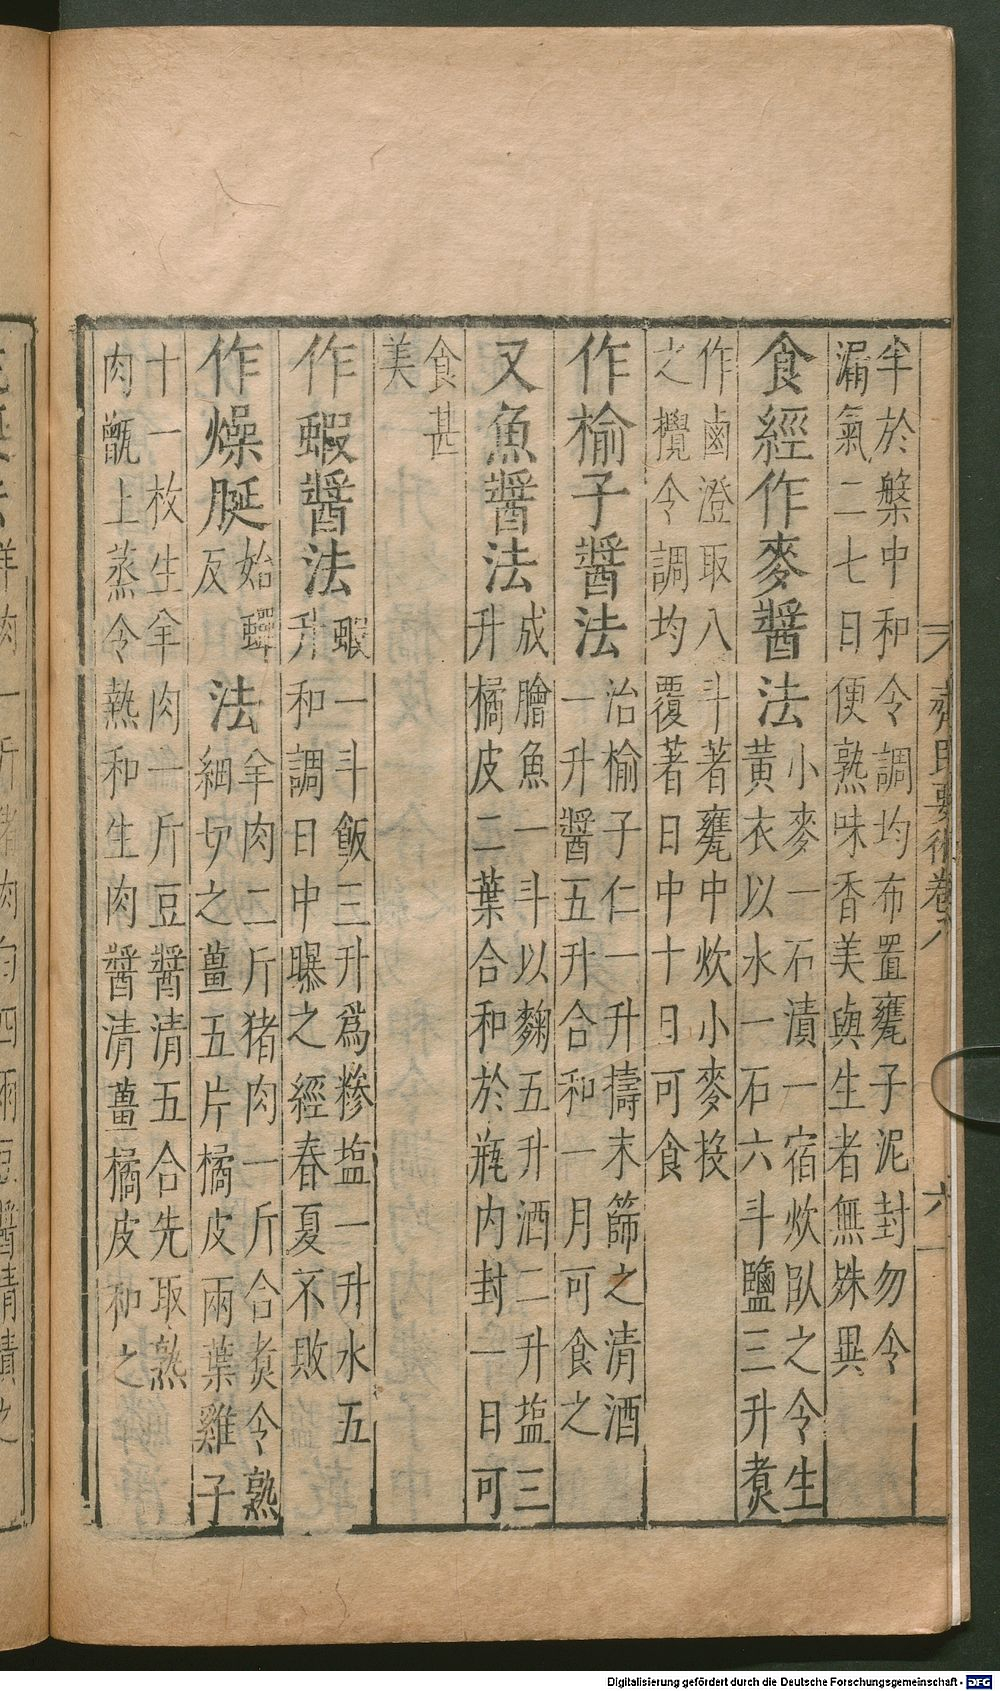 齊民要術卷八
六
於槃中和令調均布置甕子泥封勿令
漏氣二七日便熟味香美與生者無殊異
食經作麥醬法
小麥一石漬一宿炊臥之令生
黃衣以水一石六斗鹽三升煑
作鹵澄取八斗著甕中炊小麥投
之攪令調均覆著日中十日可食
作榆子醬法
治榆子仁一升擣末篩之清酒
一升醬五升合和一月可食之
又魚醬法
成膾魚一斗以麴五升酒二升塩三
升橘皮二葉合和於瓶内封一日可
食甚
美
作蝦醬法
蝦一斗飯三升爲糝塩一升水五
升和調日中曝之經春夏不敗
作燥脡
始蟬
反
法
羊肉二斤猪肉一斤合煑令熟
細切之薑五片橘皮兩葉雞子
十一枚生羊肉一斤豆醬清五合先取熟
肉甑上蒸令熟和生肉醬清薑橘皮和之
羊肉一斤猪肉白四兩豆醬清漬之
Digitalisierung gefördert durch die Deutsche Forschungsgemeinschaft - DFG